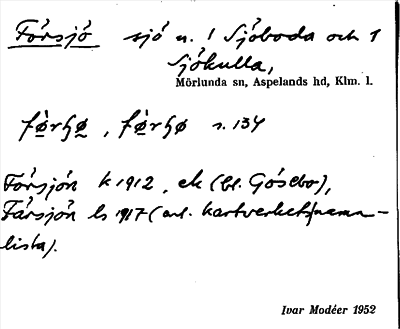 Försjö sjö n. 1 Sjöboda och 1
Sjökulla,
Mörlunda sn, Aspelands hd, Klm. l.
s. 134
Försjön k 1912, ek (bl. Gösebo),
Färsjön ls 1917 (anl. kartverkets namn-
lista).
Ivar Modéer 1952